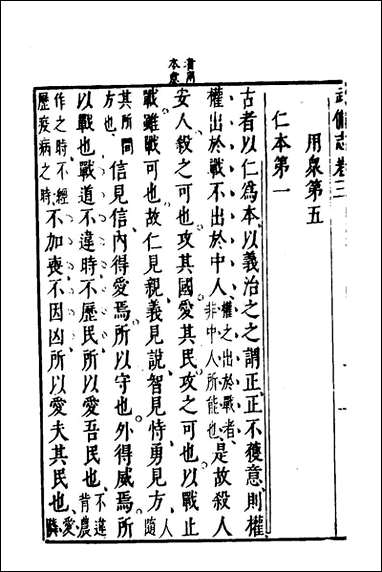 武備志卷三
用衆第五
仁本第一
古者以仁爲本以義治之之謂正正不獲意則權
權出於戰不出於中人權之出於戰者非中人所能也是故殺人
安人殺之可也攻其國愛其民攻之可也以戰止
戰雖戰可也故仁見親義見說智見恃勇見方人隨
其所問方也信見信內得愛焉所以守也外得威焉所
以戰也戰道不違時不歷民所以愛吾民也不違肯農
作之時不經歷疫病之時不加喪不因凶所以愛夫其民也愛